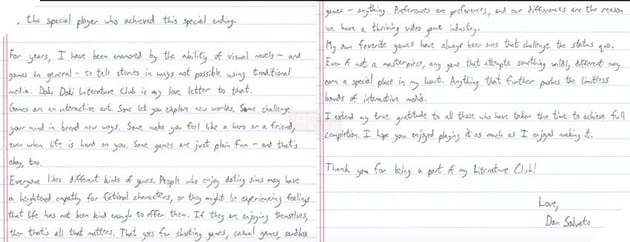 , the special player who achieved this special ending.
For years, I have been enamored by the ability of visual novels - and
games in general - to tell stories in ways not possible using traditional
media. Doki Doki Literature Club is my love letter to that.
Games are an interactive art. Some let you explore new worlds. Some challenge
your mind in brand new ways. Some make you feel like a hero or a friend,
even when life is hard on you. Some games are just plain fun - and that's
okay, too.
Everyone likes different kinds of games. People who enjoy dating sims may have
a heightened empathy for fictional characters, or they might be experiencing feelings
that life has not been kind enough to offer them. If they are enjoying themselves,
then that's all that matters. That goes for shooting games, casual games, sandbox
games - anything. Preferences are preferences, and our differences are the reason
we have a thriving video game industry.
My own favorite games have always been ones that challenge the status quo.
Even if not a masterpiece, any game that attempts something wildly different may
earn a special place in my heart. Anything that further pushes the limitless
bounds of interactive media.
I extend my true gratitude to all those who have taken the time to achieve full
completion. I hope you enjoyed playing it as much as I enjoyed making it.
Thank you for being a part of my Literature Club!
Love,
Dan Salvato